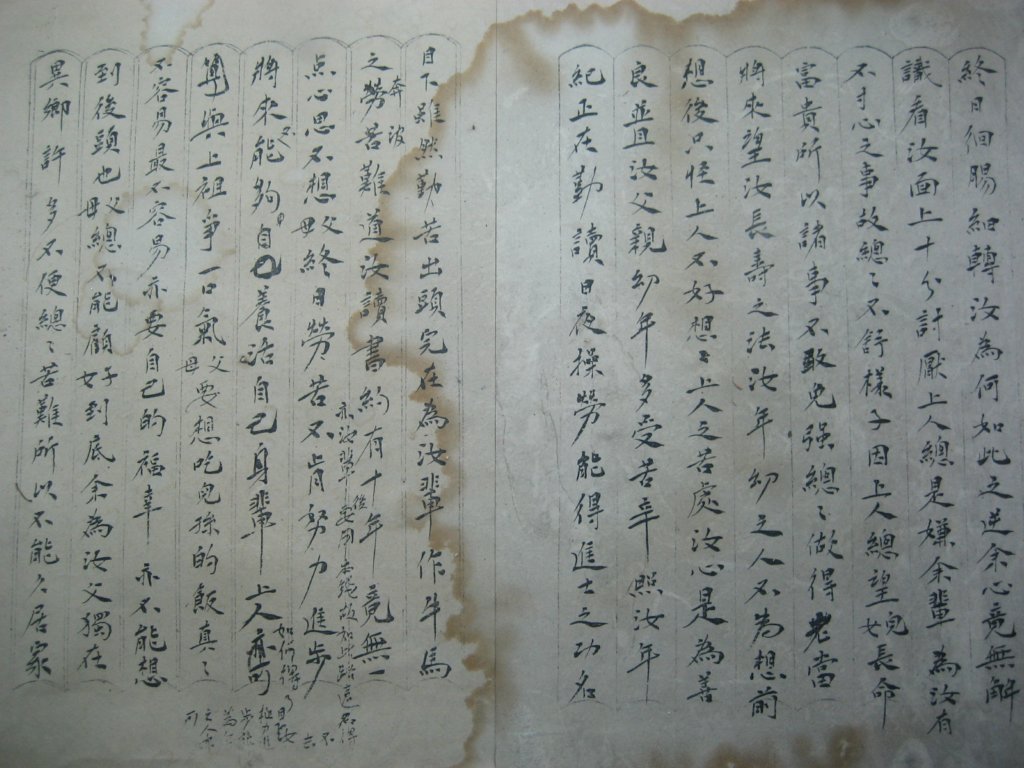 終日徊腸細轉汝為何如此之逆余心竟無解
識看汝面上十分討厭上人總是嫌余輩為汝有
不寸心之事故總〻不舒樣子因上人總望兒女長命
富貴所以諸事不敢免强總〻做得老當
將來望汝長壽之法汝年幼之人不為想前
想後只怪上人不好想〻上人之苦處汝心是為善
良並且汝父親幼年多受苦辛照汝年
紀正在勤讀日夜操勞能得進士之功名
目下雖然勤苦出頭完在為汝輩作牛馬
之奔波勞苦難道汝讀書約有十年竟無一
点心思不想父母終日勞苦不肯努力進步
將來能够自己養活自己身輩上人亦可
與上祖爭一口氣父母要想吃兒孫的飯真〻
不容易最不容易亦要自己的福幸亦不能想
到後頭也父母總不能顧子女到底余為汝父獨在
異鄉許多不便總〻苦難所以不能久居家